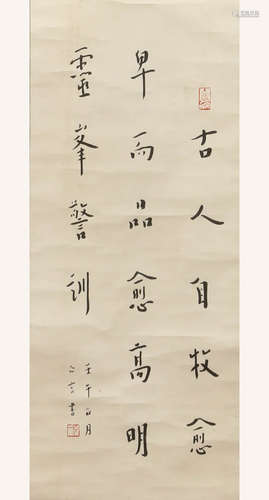 古人自牧愈
卑而品愈高明
靈峯警訓
壬午 月